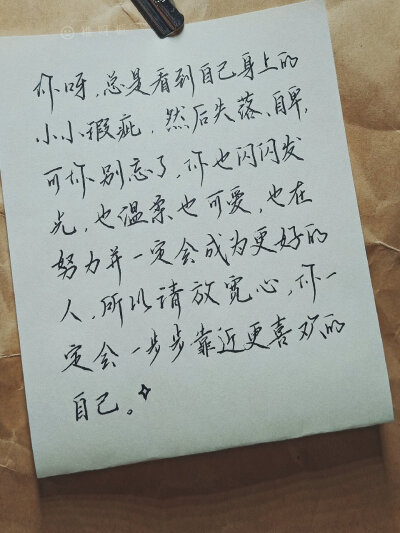 你呀，总是看到自己身上的
小小瑕疵，然后失落、自卑，
可你别忘了，你也闪闪发
光，也温柔也可爱，也在
努力并一定会成为更好的
人，所以请放宽心，你一
定会一步步靠近更喜欢的
自己。